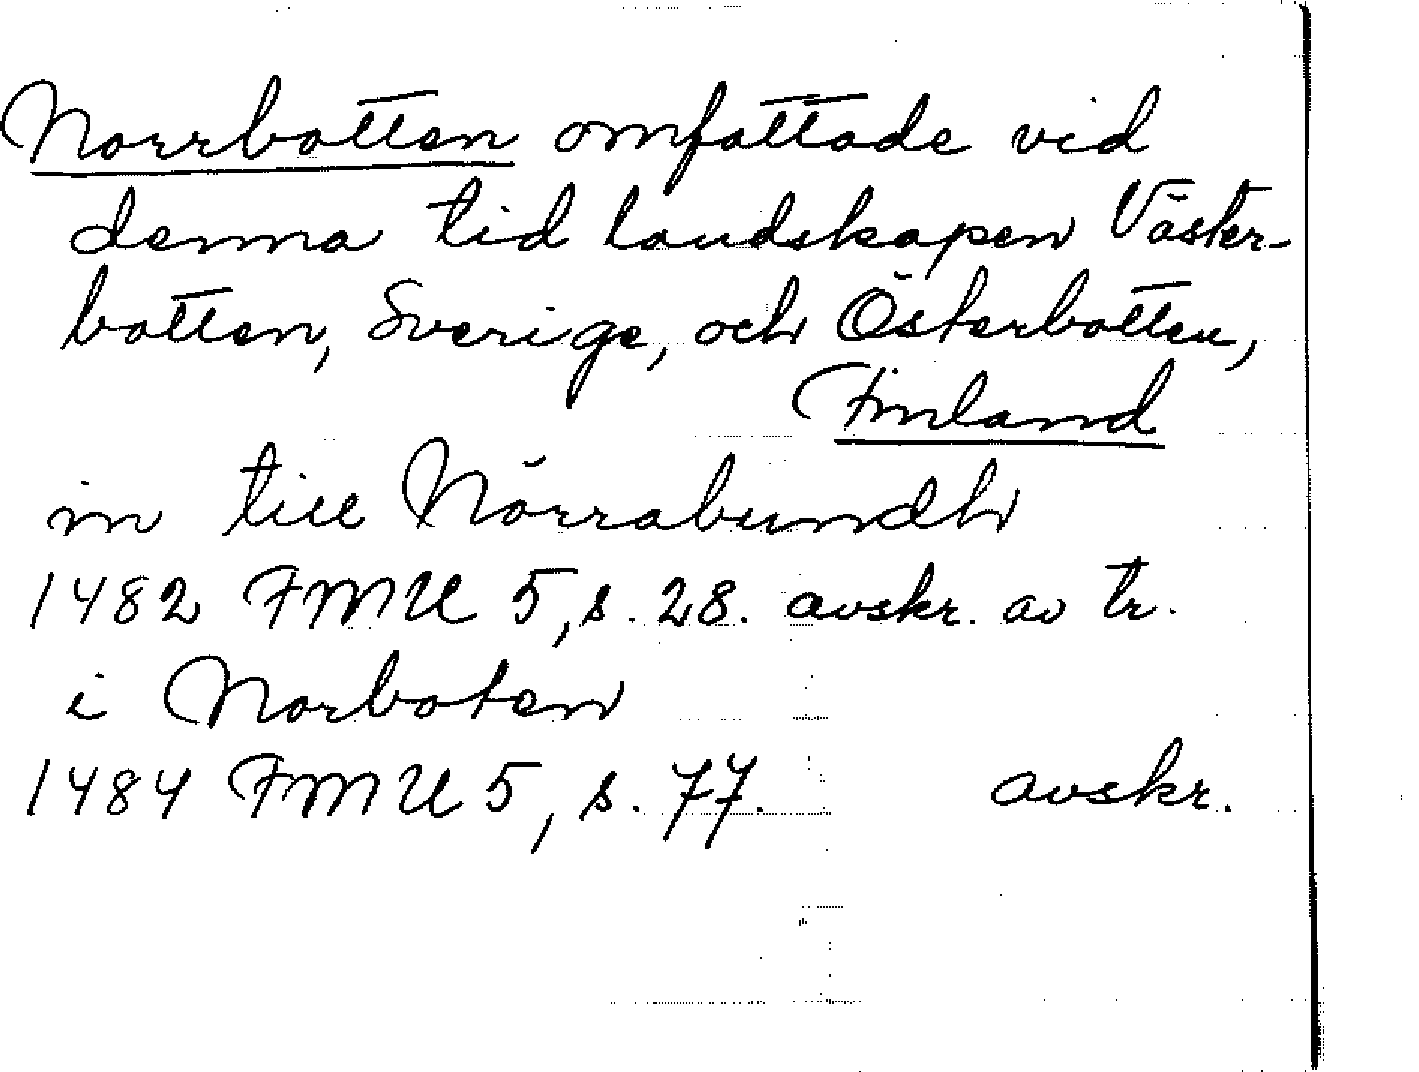 Norrbotten omfattade vid
denna tid landskapen Väster-
botten, Sverige, och Österbotten,
Finland
in till Nörrabundh
1482 FMU 5, s. 28. avskr. av tr.
i Norboten
1484 FMU 5, s. 77. avskr.